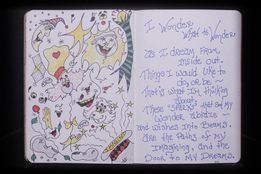 I Wonder
What to Wonder
As I dream from
inside out.
Things I would like to
do or be~
That's what I'm thinking
about.
These "sparks" that set my
Wonder ablaze ~
and wishes into Beams.
are the Paths of My
Imagining, and the
Door to My Dreams.